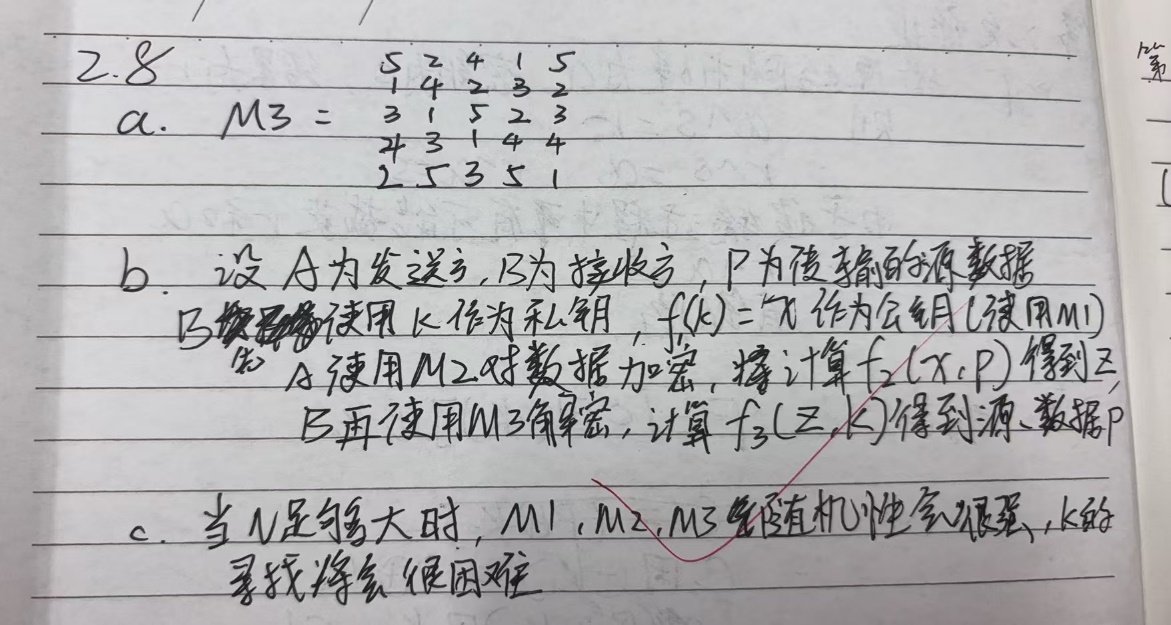 2.8
5 2 4 1 5
1 4 2 3 2
a. M3 = 3 1 5 2 3
4 3 1 4 4
2 5 3 5 1
b. 设A为发送方,B为接收方,P为传输的源数据
B先使用K作为私钥,f₁(k)=x作为公钥(使用M1)
A使用M2对数据加密,将计算f₂(x,p)得到Z,
B再使用M3解密,计算f₃(Z,K)得到源数据P
c. 当N足够大时,M1,M2,M3随机性会很强,K的
寻找将会很困难
第